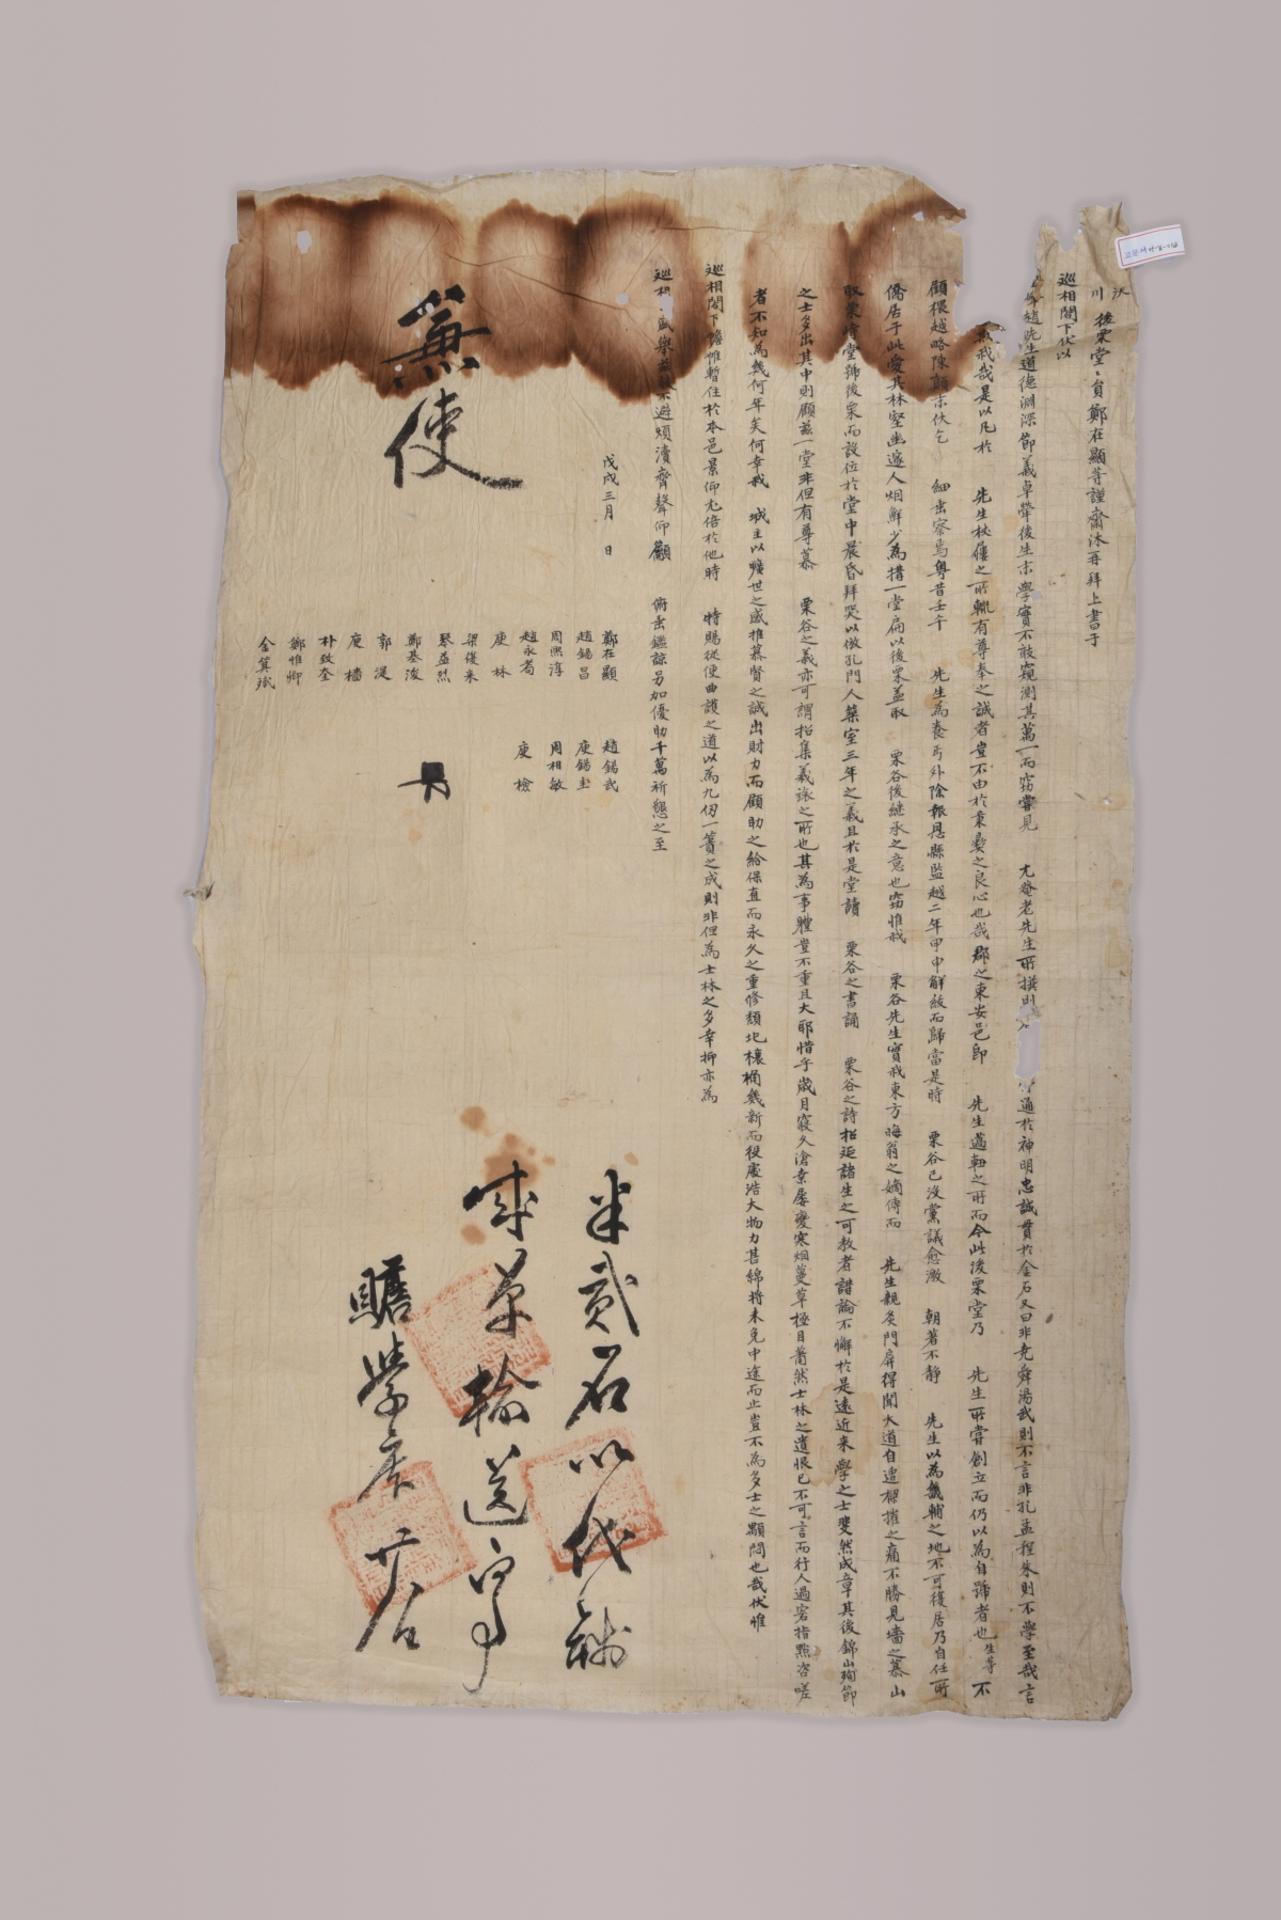 沃川 後栗堂堂員鄭在顯等謹齋沐再拜上書于
巡相閤下伏以
峰趙先生道德淵深節義卓犖後生末學實不敢窺測其萬一而竊嘗見 尤菴老先生所撰則 通於神明忠誠貫於金石又曰非堯舜湯武則不言非孔孟程朱則不學至哉言
哉是以凡於 先生杖屨之所輒有尊奉之誠者豈不由於秉彝之良心也哉郡之東安邑卽 先生薖軸之所而今此後栗堂乃 先生所嘗創立而仍以爲自號者也生等不
顧猥越略陳顚末伏乞 細垂察焉粤昔壬午 先生爲養丐外除報恩縣監越二年甲申解紱而歸當是時 栗谷已沒黨議愈激 朝著不靜 先生以爲畿輔之地不可復居乃自任所
僑居于此愛其林壑幽邃人烟鮮少爲搆一堂扁以後栗盖取 栗谷後繼承之意也竊惟我 栗谷先生實我東方晦翁之嫡傳而 先生親炙門屛得聞大道自遭樑摧之痛不勝見墻之慕山
取栗 堂號後栗而設位於堂中晨昏拜哭以倣孔門人築室三年之義且於是堂讀 栗谷之書誦 栗谷之詩招延諸生之可敎者講論不懈於是遠近來學之士斐然成章其後錦山殉節
之士多出其中則顧玆一堂非但有尊慕 栗谷之義亦可謂招集義旅之所也其爲事體豈不重且大耶惜乎歲月寢久滄桑屢變寒烟蔓草極目蕭然士林之遺恨已不可言而行人過客指點咨嗟
者不知爲幾何年矣何幸我 城主以曠世之感推慕賢之誠出財力而顧助之給保直而永久之重修頹圮欀桷幾新而役處浩大物力甚綿將未免中途而止豈不爲多士之顯悶也哉伏惟
巡相閤下襜帷暫住於本邑景仰尤倍於他時 特賜從便曲護之道以爲九仞一簣之成則非但爲士林之多幸抑亦爲
巡相 盛擧玆敢不避煩瀆齊聲仰籲 俯垂鑑諒另加優助千萬祈懇之至
戊戌三月 日
鄭在顯 趙錫武
趙錫昌 庾錫圭
周熙淳 周相敏
趙永耈
庾林 庾檢
梁俊永
琴益烈
鄭基浚
郭湜
庾樯
朴致奎
鄭惟卿
金箕斌
兼使
米貳石以代錢
成革輸送事
贍學庫 廿六日